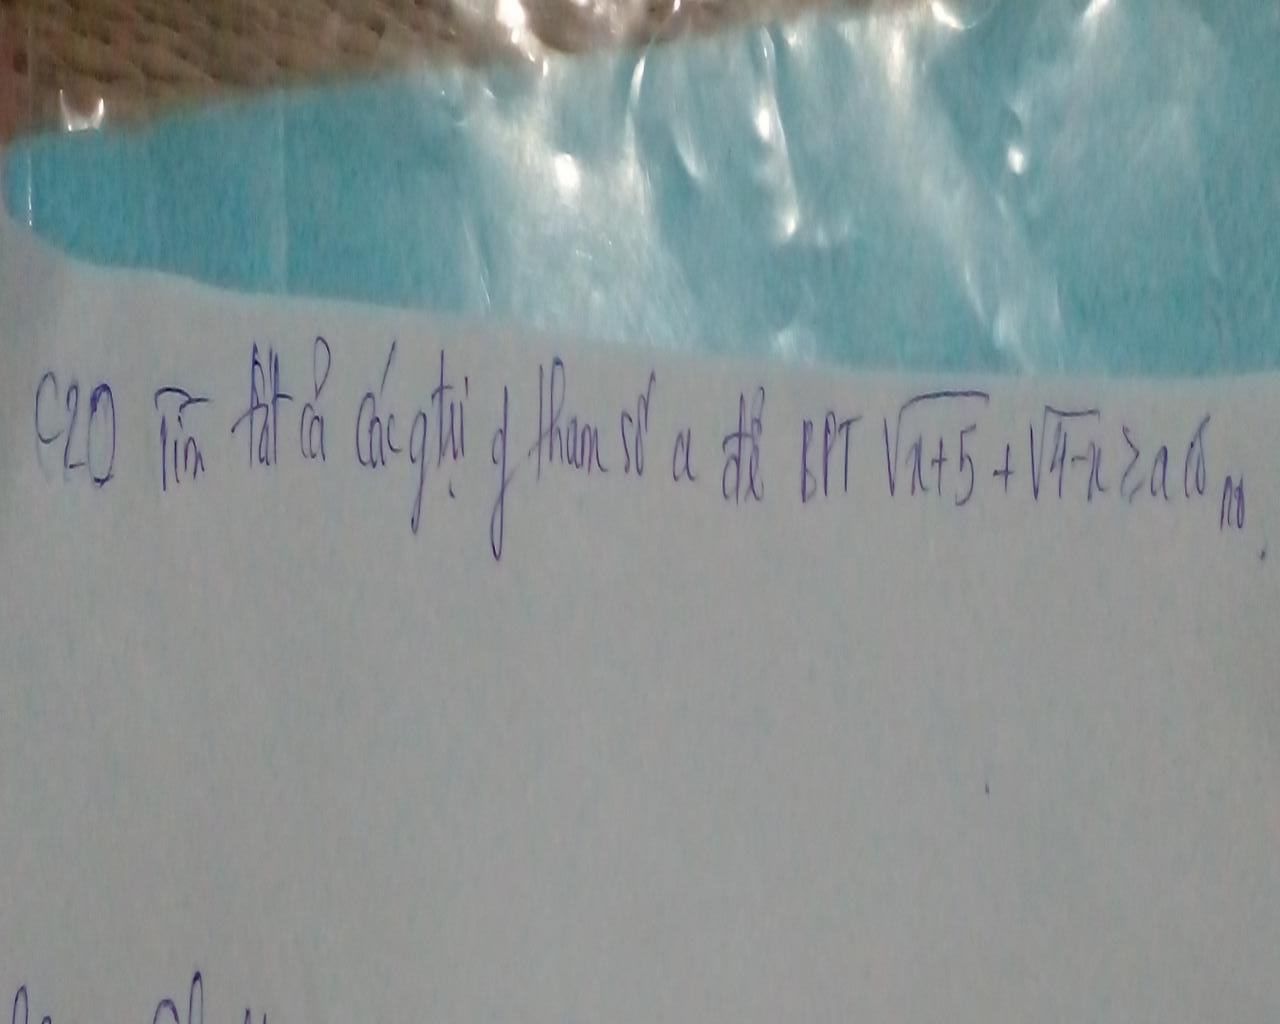 C20 Tìm tất cả các gtrị of tham số a để BPT √x+5 + √4-x ≥ a có no.